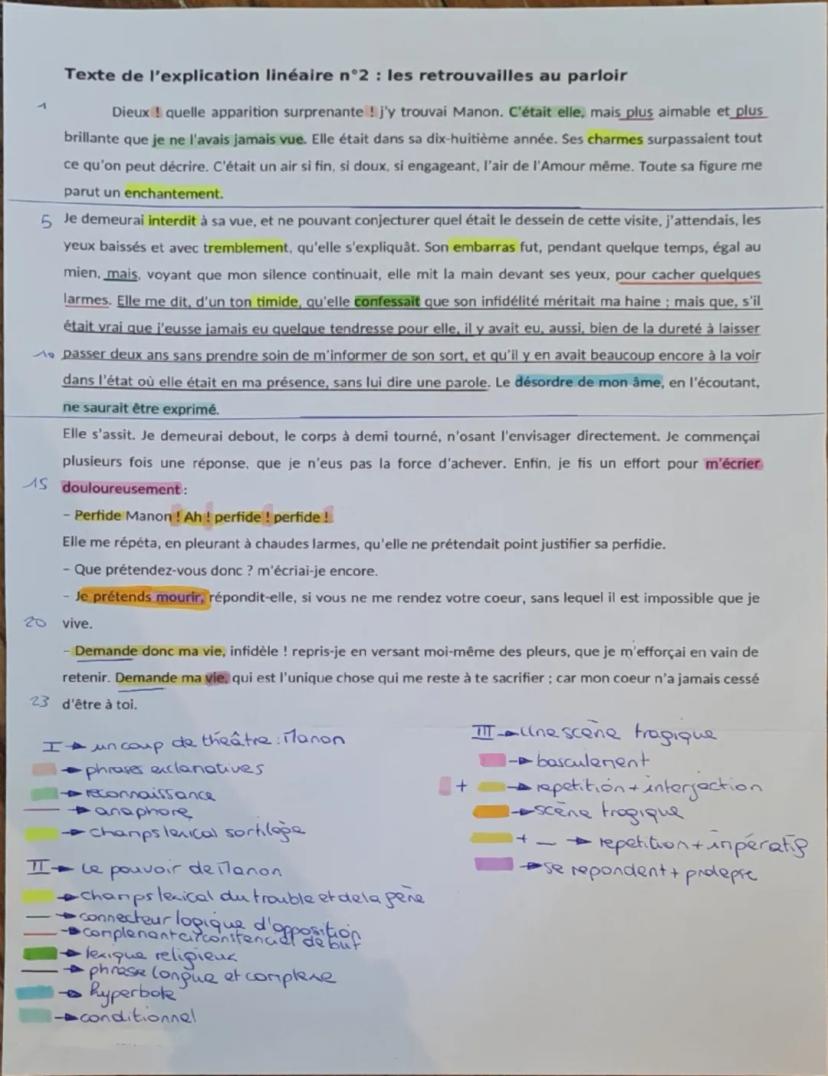 Texte de l'explication linéaire n°2 : les retrouvailles au parloir
1 Dieux ! quelle apparition surprenante ! j'y trouvai Manon. C'était elle, mais plus aimable et plus
brillante que je ne l'avais jamais vue. Elle était dans sa dix-huitième année. Ses charmes surpassaient tout
ce qu'on peut décrire. C'était un air si fin, si doux, si engageant, l'air de l'Amour même. Toute sa figure me
parut un enchantement.
5 Je demeurai interdit à sa vue, et ne pouvant conjecturer quel était le dessein de cette visite, j'attendais, les
yeux baissés et avec tremblement, qu'elle s'expliquât. Son embarras fut, pendant quelque temps, égal au
mien, mais, voyant que mon silence continuait, elle mit la main devant ses yeux, pour cacher quelques
larmes. Elle me dit, d'un ton timide, qu'elle confessait que son infidélité méritait ma haine ; mais que, s'il
était vrai que j'eusse jamais eu quelque tendresse pour elle, il y avait eu, aussi, bien de la dureté à laisser
10 passer deux ans sans prendre soin de m'informer de son sort, et qu'il y en avait beaucoup encore à la voir
dans l'état où elle était en ma présence, sans lui dire une parole. Le désordre de mon âme, en l'écoutant,
ne saurait être exprimé.
Elle s'assit. Je demeurai debout, le corps à demi tourné, n'osant l'envisager directement. Je commençai
plusieurs fois une réponse, que je n'eus pas la force d'achever. Enfin, je fis un effort pour m'écrier
15 douloureusement :
- Perfide Manon ! Ah ! perfide ! perfide !
Elle me répéta, en pleurant à chaudes larmes, qu'elle ne prétendait point justifier sa perfidie.
- Que prétendez-vous donc ? m'écriai-je encore.
- Je prétends mourir, répondit-elle, si vous ne me rendez votre coeur, sans lequel il est impossible que je
20 vive.
- Demande donc ma vie, infidèle ! repris-je en versant moi-même des pleurs, que je m'efforçai en vain de
retenir. Demande ma vie, qui est l'unique chose qui me reste à te sacrifier ; car mon coeur n'a jamais cessé
23 d'être à toi.
I → un coup de théâtre : Manon
→ phrases exclamatives
→ reconnaissance
→ anaphore
→ champs lexical sortilège
II → Le pouvoir de Manon
→ champs lexical du trouble et de la gêne
→ connecteur logique d'opposition
→ complémant circonstenciel de but
→ lexique religieux
→ phrase longue et complexe
→ hyperbole
→ conditionnel
III → Une scène tragique
→ basculement
+ → repetition + interjection
→ scène tragique
+ _ → repetition + impératif
→ se repondent + prolepse